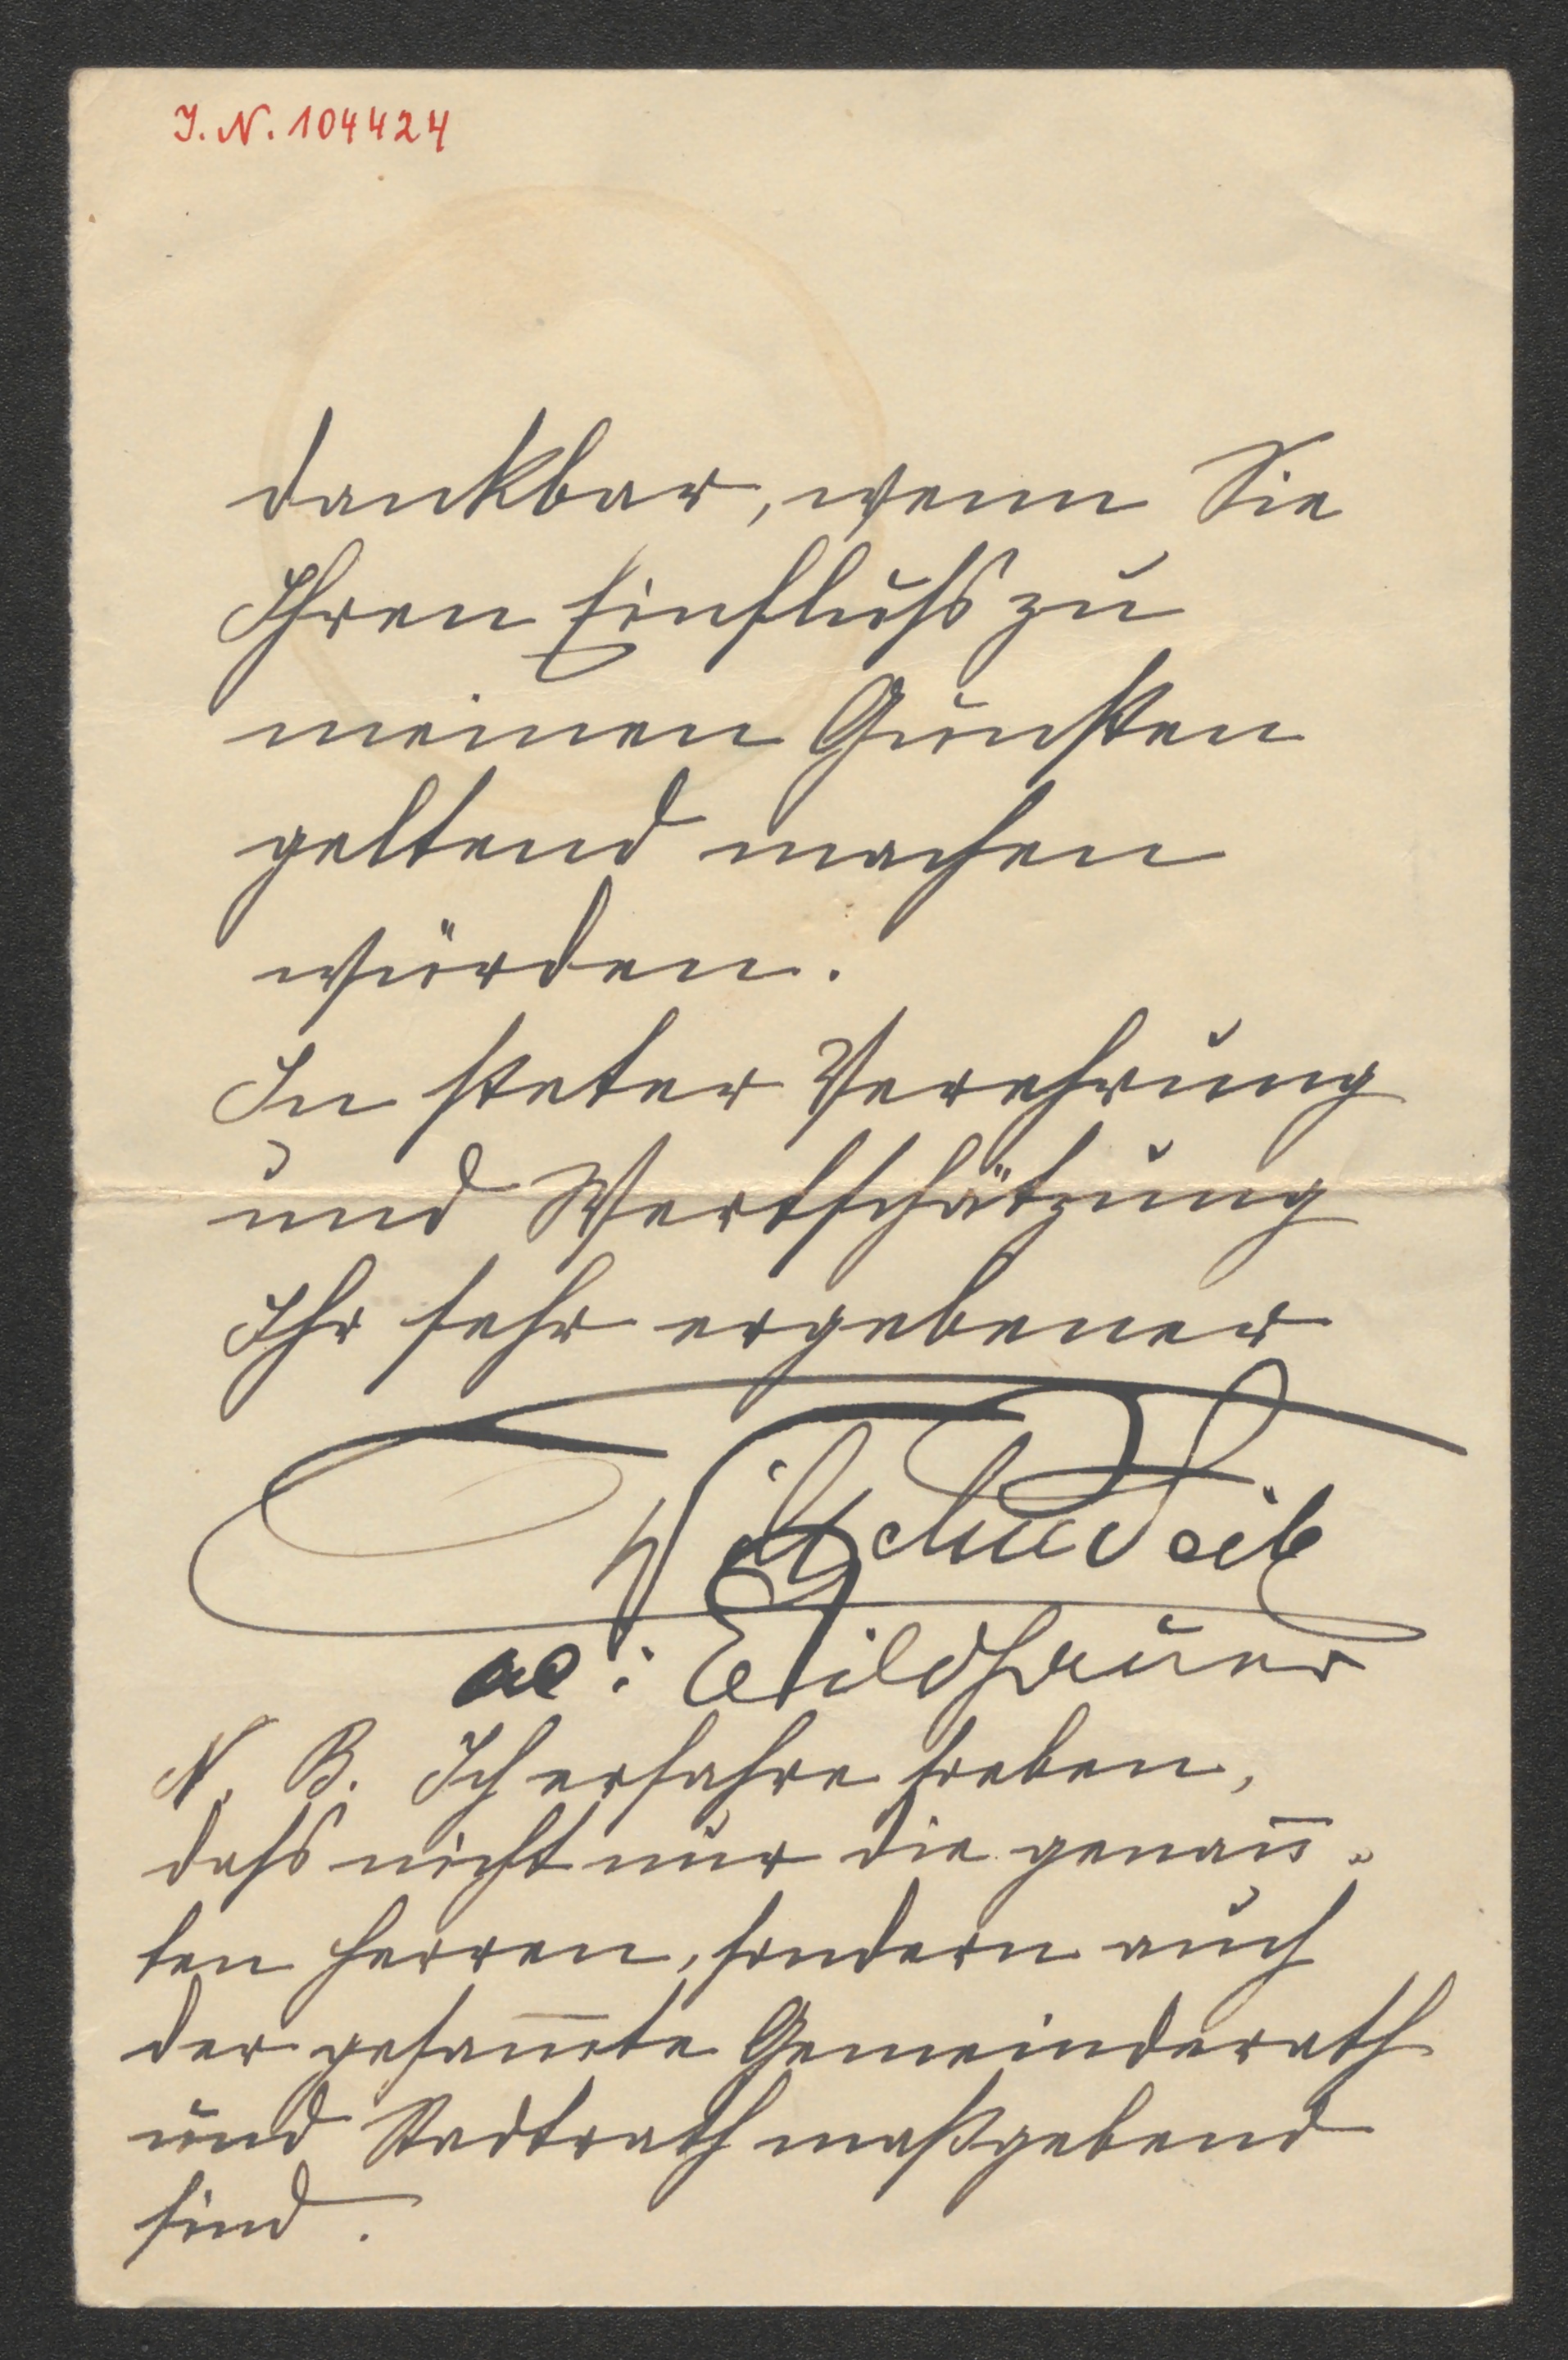 J. N. 104424
dankbar, wenn Sie
Ihren Einfluſs zu
meinen Gunsten
geltend machen
würden.
In steter Verehrung
und Wertschätzung
Ihr sehr ergebener
Wilhelm Seib
ac: Bildhauer
N. B. Ich erfahre soeben,
daſs nicht nur die genan̅-
ten Herren, sondern auch
der gesam̅te Gemeinderath
und Stadtrath maßgebend
sind.